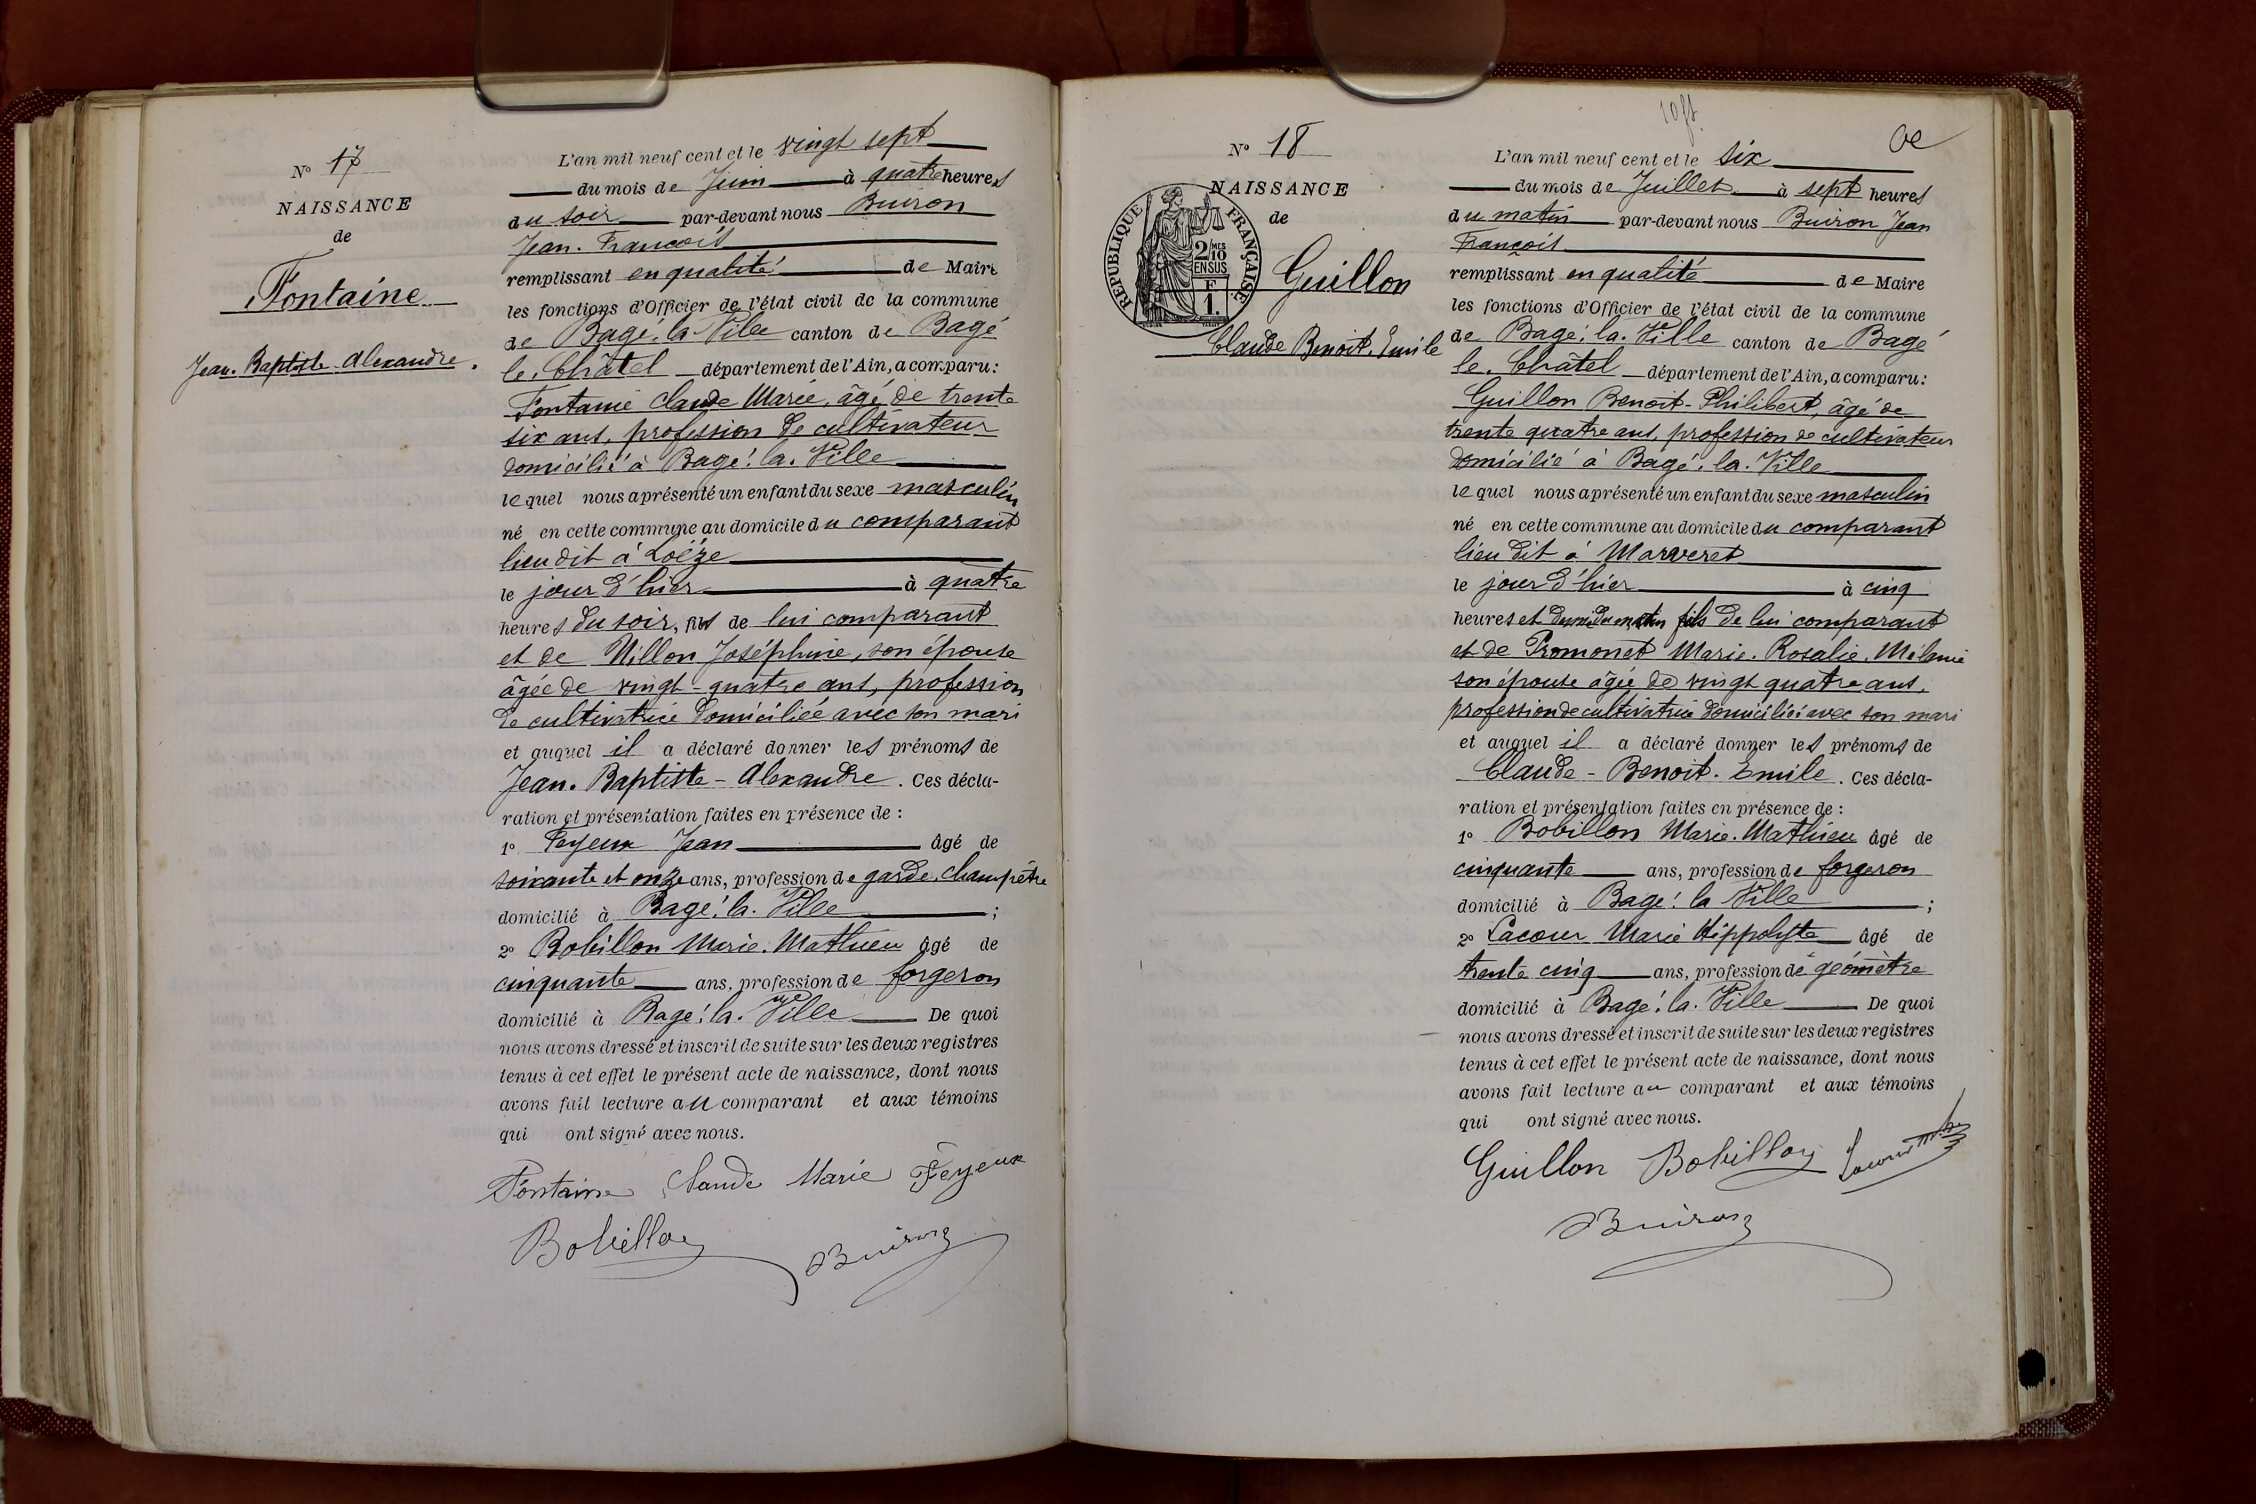 N° 17
NAISSANCE
de
Fontaine
Jean. Baptiste Alexandre.
L'an mil neuf cent et le vingt sept
du mois de Juin à quatre heures
du soir par-devant nous Buiron
Jean. François
remplissant en qualité de Maire
les fonctions d'Officier de l'état civil de la commune
de Bagé. la Ville canton de Bagé
le. Châtel département de l'Ain, a comparu:
Fontaine Claude Marie, âgé de trente
six ans, profession de cultivateur
domicilié à Bagé. la. Ville
lequel nous a présenté un enfant du sexe masculin
né en cette commune au domicile du comparant
lieu dit à Loëze
le jour d'hier à quatre
heures du soir, fils de lui comparant
et de Millon Joséphine, son épouse
âgée de vingt-quatre ans, profession
de cultivatrice domiciliée avec son mari
et auquel il a déclaré donner les prénoms de
Jean. Baptiste-Alexandre. Ces décla-
ration et présentation faites en présence de :
1° Feyeux Jean âgé de
soixante et onze ans, profession de garde. champêtre
domicilié à Bagé. la. Ville ;
2° Bobillon Marie. Mathieu âgé de
cinquante ans, profession de forgeron
domicilié à Bagé. la. Ville De quoi
nous avons dressé et inscrit de suite sur les deux registres
tenus à cet effet le présent acte de naissance, dont nous
avons fait lecture au comparant et aux témoins
qui ont signé avec nous.
Fontaine Claude Marie Feyeux
Bobillon Buiron
N° 18
NAISSANCE
de
REPUBLIQUE FRANÇAISE.
2/10 MES
EN SUS
F
1.
Guillon
Claude Benoit. Emile
L'an mil neuf cent et le six
du mois de Juillet à sept heures
du matin par-devant nous Buiron Jean
François
remplissant en qualité de Maire
les fonctions d'Officier de l'état civil de la commune
de Bagé. la. Ville canton de Bagé
le. Châtel département de l'Ain, a comparu:
Guillon Benoit-Philibert, âgé de
trente quatre ans, profession de cultivateur
domicilié à Bagé. la. Ville
lequel nous a présenté un enfant du sexe masculin
né en cette commune au domicile du comparant
lieu dit à Marveret
le jour d'hier à cinq
heures et demi du matin fils de lui comparant
et de Promonet Marie. Rosalie. Mélanie
son épouse âgée de vingt quatre ans,
profession de cultivatrice domiciliée avec son mari
et auquel il a déclaré donner les prénoms de
Claude-Benoit. Emile. Ces décla-
ration et présentation faites en présence de :
1° Bobillon Marie. Mathieu âgé de
cinquante ans, profession de forgeron
domicilié à Bagé. la Ville ;
2° Lacour Marie Hippolyte âgé de
trente cinq ans, profession de géomètre
domicilié à Bagé. la. Ville De quoi
nous avons dressé et inscrit de suite sur les deux registres
tenus à cet effet le présent acte de naissance, dont nous
avons fait lecture au comparant et aux témoins
qui ont signé avec nous.
Guillon Bobillon Lacour
Buiron